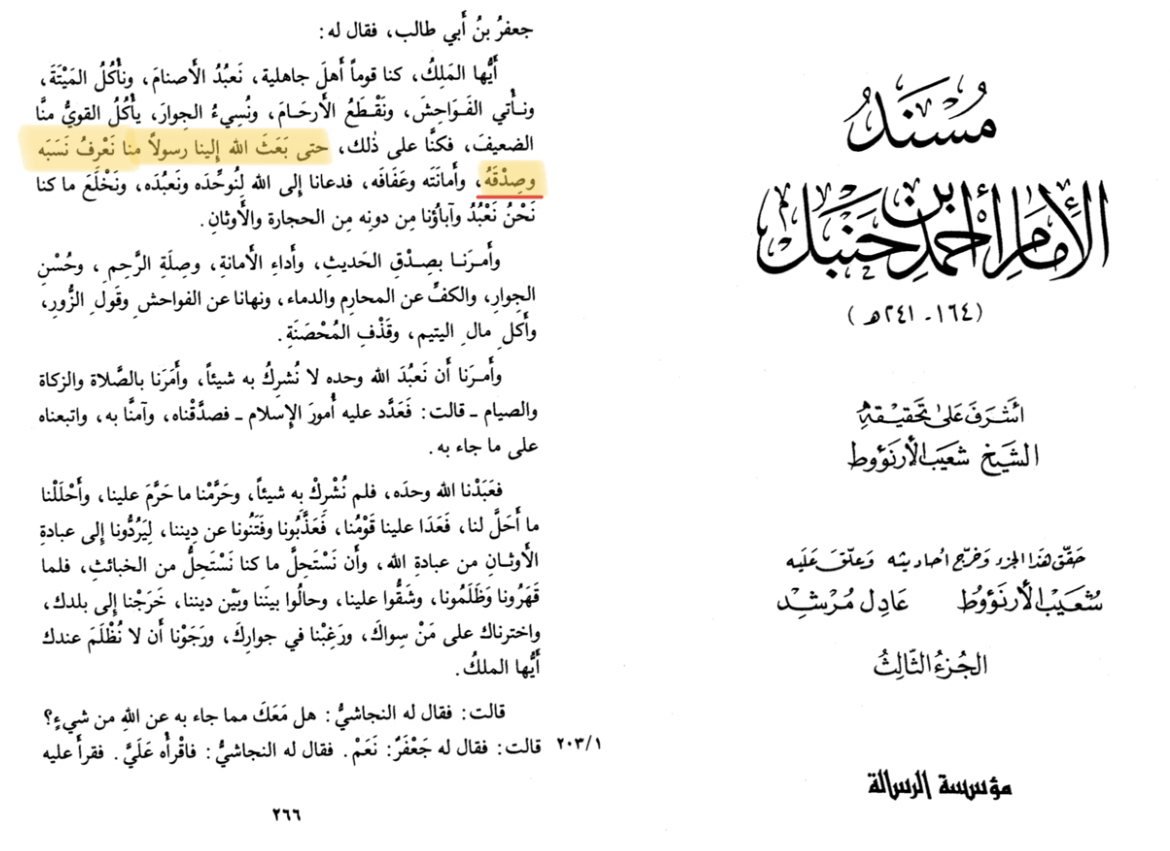 مُسْنَدُ
الإِمَامِ أَحْمَدَ بْنِ حَنْبَلٍ
(١٦٤ - ٢٤١ هـ)
أشرف على تحقيقه
الشيخ شعيب الأرنؤوط
حقّق هذا الجزء وخرّج أحاديثه وعلّق عليه
شعيب الأرنؤوط عادل مرشد
الجزء الثالث
مؤسسة الرسالة
جعفرُ بنُ أَبي طالب، فقال له:
أَيُّها المَلِكُ، كنا قوماً أَهلَ جاهلية، نَعبُدُ الأَصنامَ، ونأْكُلُ المَيْتَةَ،
ونأتي الفَوَاحِشَ، ونَقْطَعُ الأَرحَامَ، ونُسِيءُ الجِوارَ، يأْكُلُ القويُّ منَّا
الضعيفَ، فكنَّا على ذٰلك، حتى بَعَثَ الله إلينا رسولاً منا نَعْرِفُ نَسَبَه
وصِدْقَهُ، وأَمانَتَه وعَفَافَه، فدعانا إلى الله لِنُوحِّدَه ونَعبُدَه، ونَخْلَعَ ما كنا
نَحْنُ نَعْبُدُ وآباؤُنا مِن دونِه مِن الحجارة والأَوثانِ.
وأَمرَنا بصِدْقِ الحَديثِ، وأَداءِ الأَمانةِ، وصِلَةِ الرَّحِمِ، وحُسْنِ
الجِوارِ، والكفِّ عن المحارِمِ والدماء، ونهانا عن الفواحش وقَولِ الزُّورِ،
وأَكلِ مالِ اليتيم، وقَذْفِ المُحْصَنَةِ.
وأَمرَنا أَن نَعبُدَ الله وحده لا نُشرِكُ به شيئاً، وأَمَرَنا بالصَّلاة والزكاة
والصيام - قالت: فَعَدَّد عليه أُمورَ الإِسلام - فصدَّقْناه، وآمنَّا به، واتبعناه
على ما جاء به.
فعَبَدْنا الله وحدَه، فلم نُشْرِكْ به شيئاً، وحَرَّمْنا ما حَرَّمَ علينا، وأَحْلَلْنا
ما أَحَلَّ لنا، فَعَدَا علينا قَوْمُنا، فَعَذَّبُونا وفَتَنُونا عن دِيننا، لِيَرُدُّونا إلى عبادةِ
الأَوثانِ من عبادةِ الله، وأَن نَسْتَحِلَّ ما كنا نَسْتَحِلُّ من الخبائثِ، فلما
قَهَرُونا وَظَلَمُونا، وشَقُّوا علينا، وحالُوا بينَنا وبَيْن ديننا، خَرَجْنا إلى بلدك،
واخترناك على مَنْ سِواكَ، ورَغِبْنا في جوارِكَ، ورَجَوْنا أَن لا نُظْلَمَ عندك
أَيُّها الملكُ.
قالت: فقال له النجاشيُّ: هل مَعَكَ مما جاء به عن اللهِ من شيءٍ؟
٢٠٣/١ قالت: فقال له جَعْفَرٌ: نَعَمْ. فقال له النجاشيُّ: فاقْرأْه عَلَيَّ. فقرأَ عليه
٢٦٦